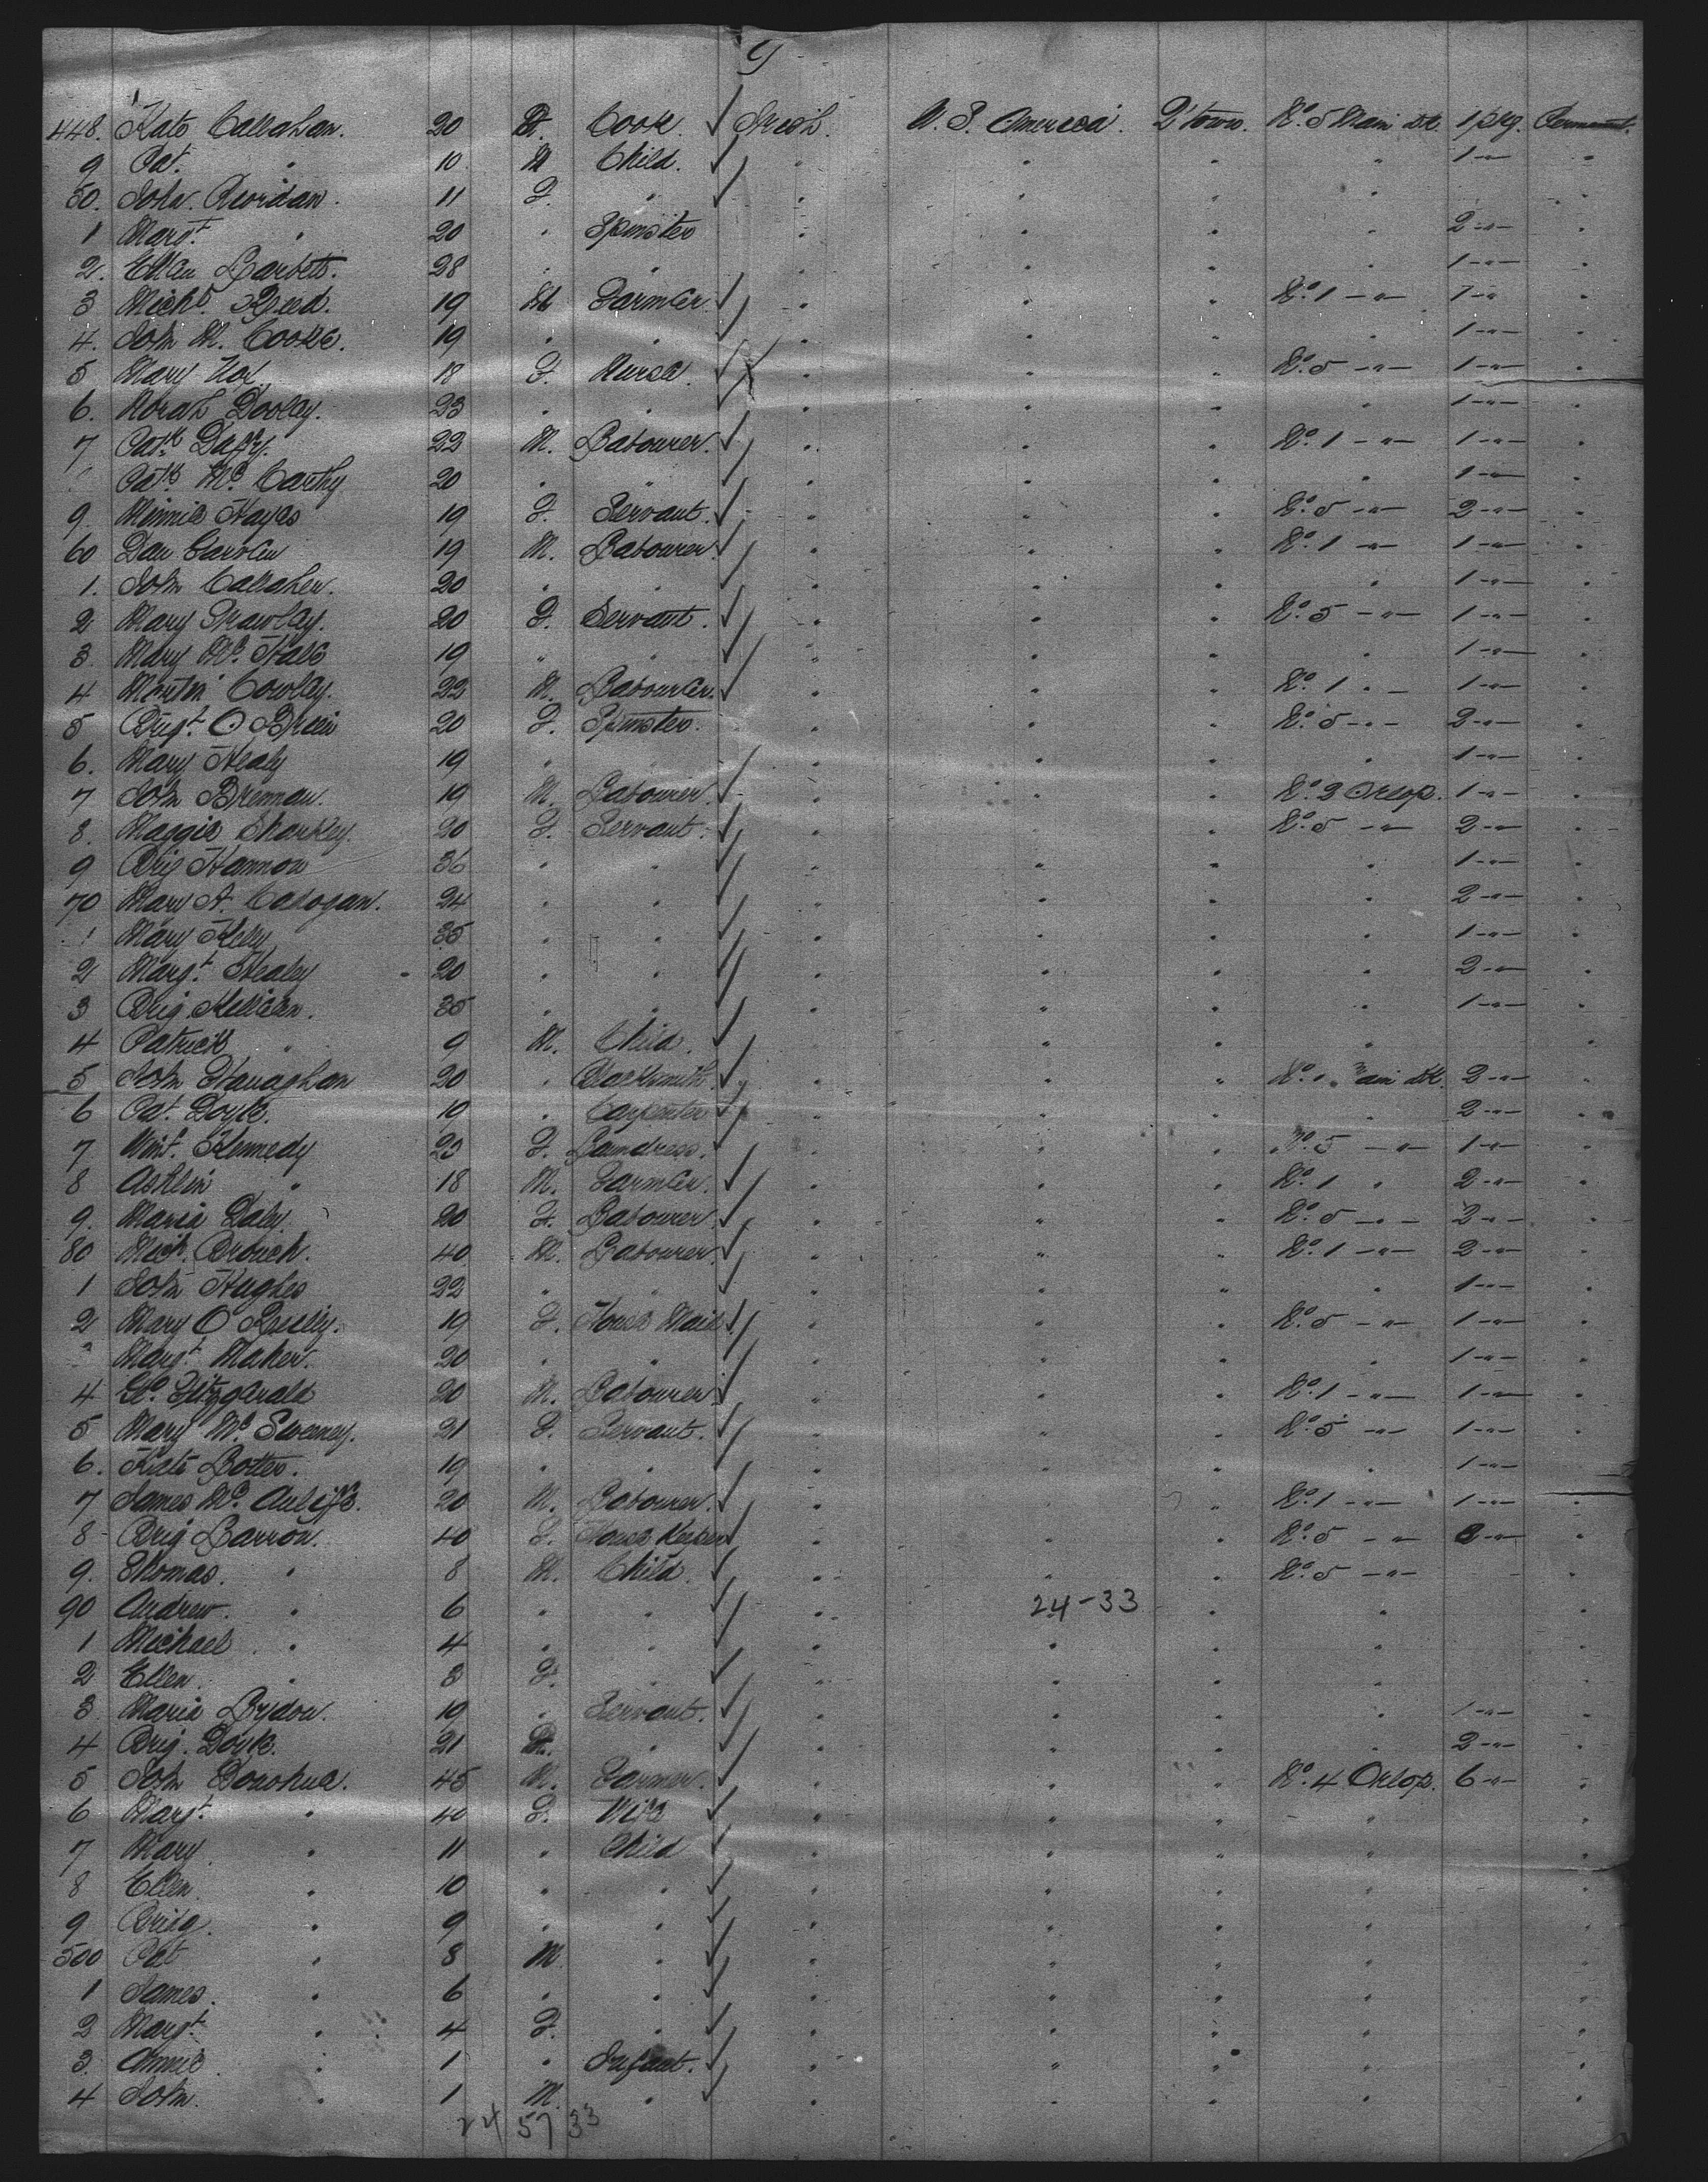 9
448. Kate Callahan. 20 F. Cook. Irish. U. S. America. Q'town. No. 5 Main dk. 1 pkg. Permanent.
9 Pat. " 10 M Child. " " " " 1 -"- "
50. John Riordan. 11 F. " " " " " "
1 Margt. " 20 " Spinster " " " " 2 -"- "
2. Ellen 28 " " " " " " 1 -"- "
3 Michl. Reed. 19 M Farmer. " " " No. 1 -"- 1 -"- "
4. John M. Cooke. 19 " " " " " " 1 -"- "
5 Mary 18 F. Nurse. " " " No. 5 -"- 1 -"- "
6. Norah Dooley. 23 " " " " " " 1 -"- "
7 Patk. Duffy. 22 M. Labourer. " " " No. 1 -"- 1 -"- "
Patk. Mc. Carthy 20 " " " " " " 1 -"- "
9. Minnie Hayes 19 F. Servant. " " " No. 5 -"- 2 -"- "
60 Dan Garvin 19 M. Labourer. " " " No. 1 -"- 1 -"- "
1. John Callaher. 20 " " " " " " 1 -"- "
2 Mary Frawley. 20 F. Servant. " " " No. 5 -"- 1 -"- "
3. Mary Mc. Hale 19 " " " " " " 1 -"- "
4 Martin Cowley. 22 M. Labourer. " " " No. 1 " - 1 -"- "
5 Brigt. O Brien 20 F. Spinster. " " " No. 5 -"- 2 -"- "
6. Mary Healy 19 " " " " " " 1 -"- "
7 John Brennan. 19 M. Labourer. " " " No. 3 Orlop. 1 -"- "
8. Maggie Sharkey. 20 F. Servant. " " " No. 5 -"- 2 -"- "
9 Brig Hannon 36 " " " " " " 1 -"- "
70 Mary A. Cadogan. 24 " " " " " " 2 -"- "
1 Mary Kelly 35 " " " " " " 1 -"- "
2 Margt. Healey 20 " " " " " " 2 -"- "
3 Brig. 35 " " " " " " 1 -"- "
4 Patrick " 9 M. Child. " " " " "
5 John Stanaghan 20 " Blacksmith. " " " No. " Main dk. 2 -"- "
6 Pat. Doyle. 19 " Carpenter " " " " 2 -"- "
7 Wint. Kennedy 23 F. Laundress. " " " No. 5 -"- 1 -"- "
8 " 18 M. Farmer. " " " No. 1 " 2 -"- "
9. Maria Daley 20 F. Labourer. " " " No. 5 -"- 2 -"- "
80 Mich. Crouch. 40 M. Labourer. " " " No. 1 -"- 2 -"- "
1 John Hughes 22 " " " " " " 1 -"- "
2 Mary O'Reilly. 19 F. House Maid. " " " No. 5 -"- 1 -"- "
3 Margt. Maher. 20 " " " " " " 1 -"- "
4 Fitzgerald 20 M. Labourer " " " No. 1 -"- 1 -"- "
5 Mary Mc. Sweeney. 21 F. Servant. " " " No. 5 -"- 1 -"- "
6. Kate Lotter. 19 " " " " " " 1 -"- "
7 James Mc. Auliffe. 20 M. Labourer. " " " No. 1 -"- 1 -"- "
8 Brig Larron. 40 F. House Keeper " " " No. 5 -"- 3 -"- "
9. Thomas. " 8 M. Child. " " " No. 5 -"-
90 Andrew. " 6 " " " 24-33 " " "
1 Michael " 4 " " " " " "
2 Ellen. " 3 F. " " " " " "
3. Maria Lydon. 19 " Servant. " " " " 1 -"- "
4 Brig. Doyle. 21 F. " " " " " 2 -"- "
5 John Donohue. 45 M. Farmer. " " " No. 4 Orlop. 6 -"- "
6 Margt. " 40 F. Wife " " " " "
7 Mary. " 11 " Child " " " " "
8 Ellen. " 10 " " " " " " "
9 Bridg. " 9 " " " " " " "
500 Pat " 8 M. " " " " " "
1 James. " 6 " " " " " " "
2 Margt. " 4 F. " " " " " "
3. Annie. " 1 " Infant. " " " " "
4 John. " 1 M. " " " " " "
24 57 33